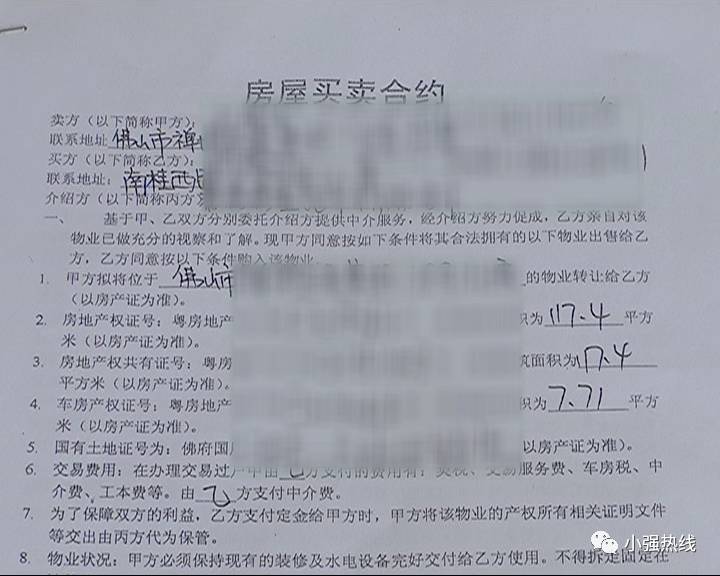 房屋买卖合约
卖方（以下简称甲方）：
联系地址 佛山市禅
买方（以下简称乙方）：
联系地址：南桂西
介绍方（以下简称丙方
一、 基于甲、乙双方分别委托介绍方提供中介服务，经介绍方努力促成，乙方亲自对该
物业已做充分的视察和了解。现甲方同意按如下条件将其合法拥有的以下物业出售给乙
方，乙方同意按以下条件购入该物业
1. 甲方拟将位于 佛山市 的物业转让给乙方
（以房产证为准）。
2. 房地产权证号：粤房地产 积为 117.4 平方
米（以房产证为准）。
3. 房地产权共有证号：粤房 筑面积为 17.4
平方米（以房产证为准）。
4. 车房产权证号：粤房地产 积为 7.71 平方
米（以房产证为准）。
5. 国有土地证号为：佛府国 以房产证为准）。
6. 交易费用：在办理交易过户中由 乙 方支付的费用有：契税、交易服务费、车房税、中
介费、工本费等。由 乙 方支付中介费。
7. 为了保障双方的利益，乙方支付定金给甲方时，甲方将该物业的产权所有相关证明文件
等交出由丙方代为保管。
8. 物业状况：甲方必须保持现有的装修及水电设备完好交付给乙方使用。不得拆走固定在
小强热线